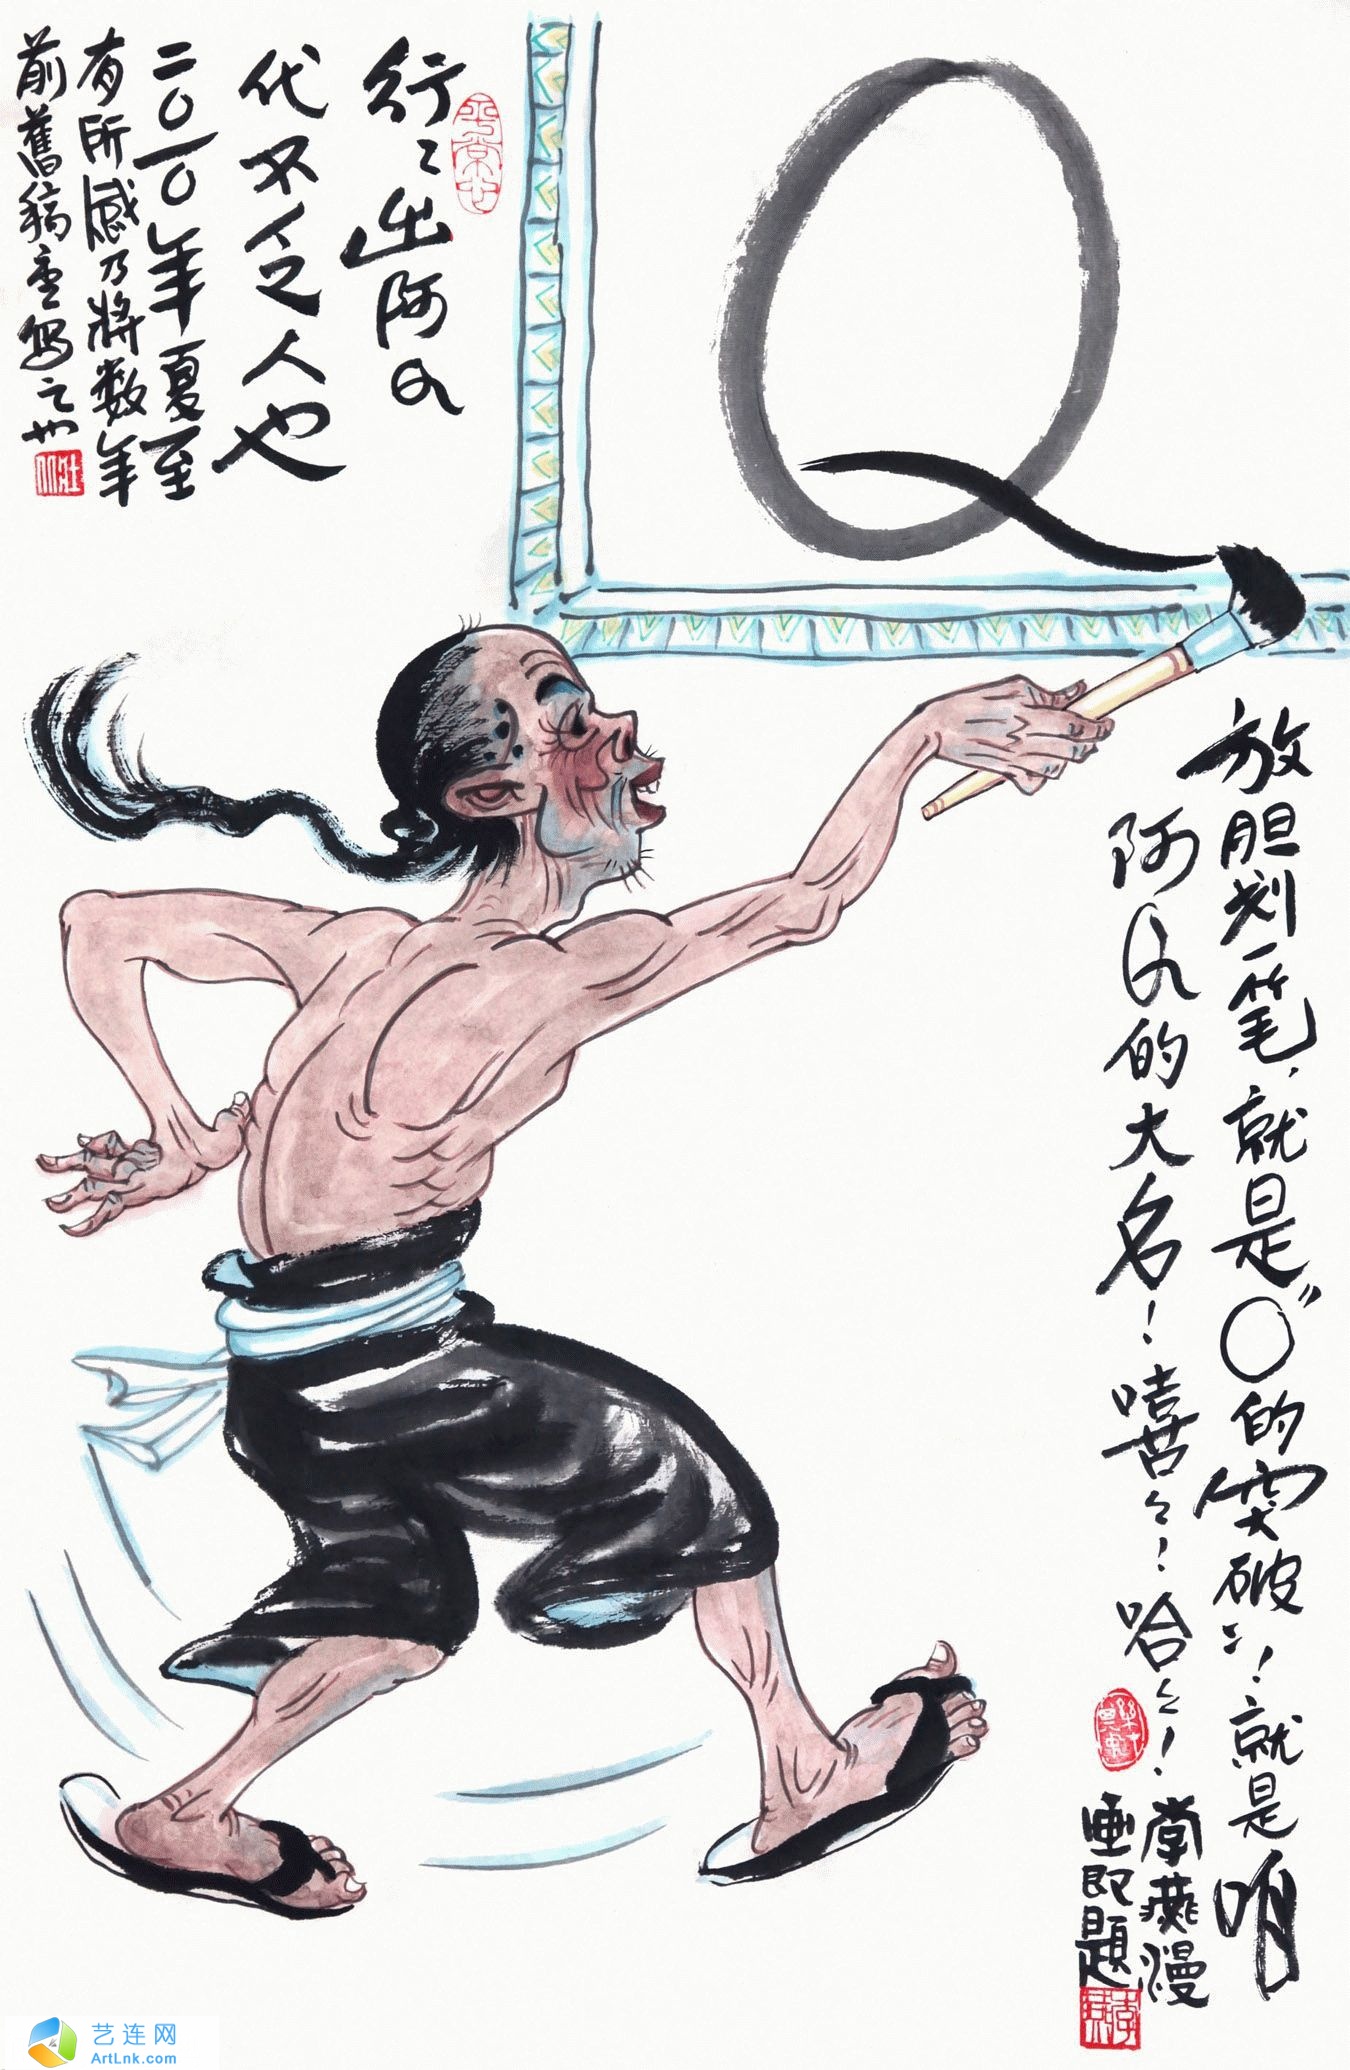 Q
行〻出阿Q
代不乏人也
二〇一〇年夏至
有所感乃将数年
前舊稿重写之
平常心
放胆划一笔,就是“〇”的突破!就是咱
阿Q的大名!嘻〻!哈〻!李燕漫
画即題
李燕
艺连网
ArtLnk.com